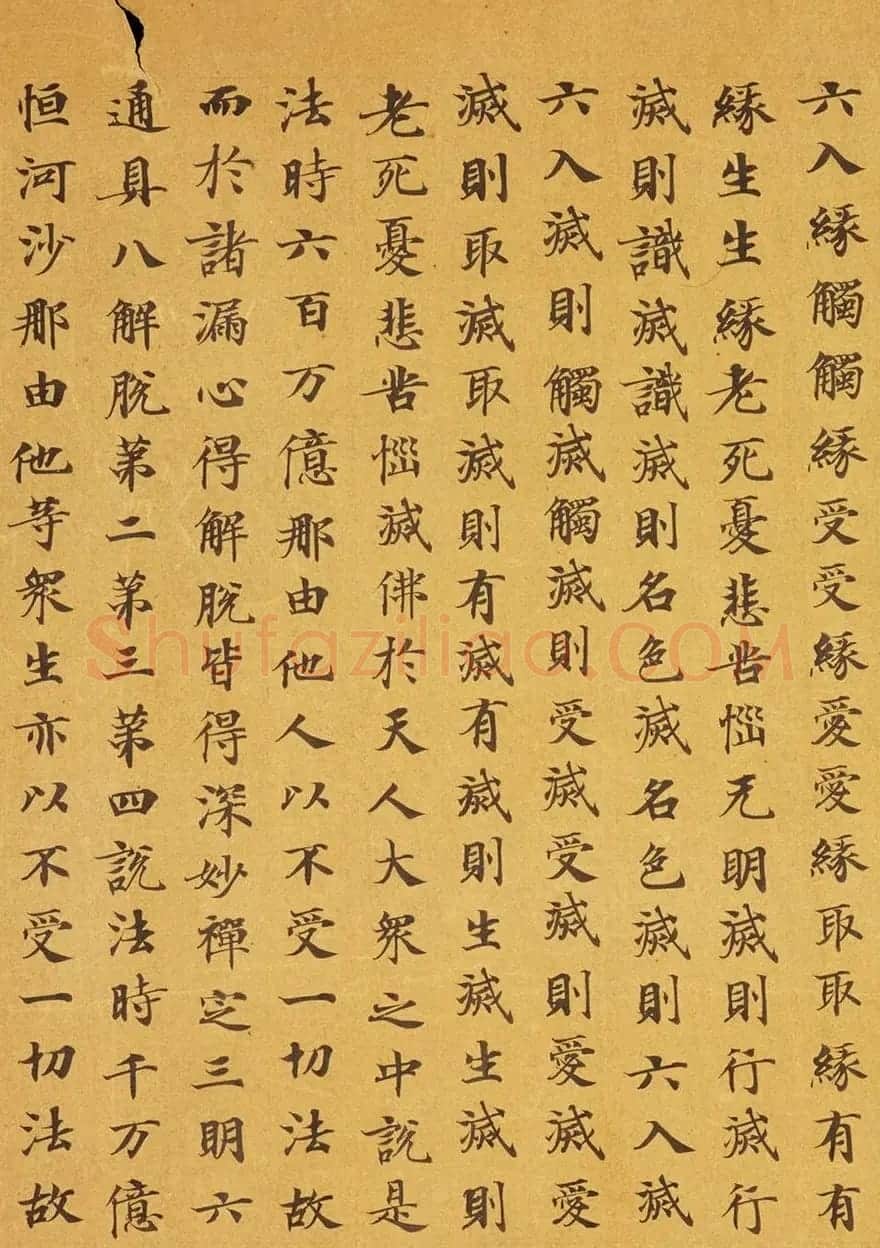 六入緣觸觸緣受受緣愛愛緣取取緣有有
緣生生緣老死憂悲苦惱无明滅則行滅行
滅則識滅識滅則名色滅名色滅則六入滅
六入滅則觸滅觸滅則受滅受滅則愛滅愛
滅則取滅取滅則有滅有滅則生滅生滅則
老死憂悲苦惱滅佛於天人大眾之中說是
法時六百万億那由他人以不受一切法故
而於諸漏心得解脫皆得深妙禪定三明六
通具八解脫第二第三第四說法時千万億
恒河沙那由他等眾生亦以不受一切法故
Shufaziliao.COM